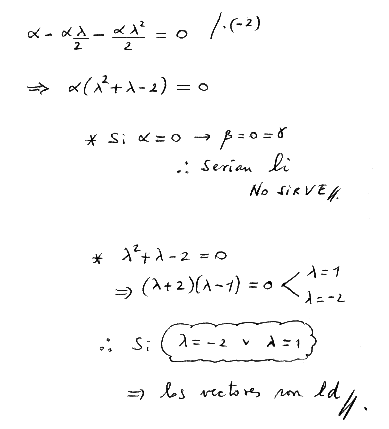 α - αλ/2 - αλ²/2 = 0 /·(-2)
⇒ α(λ²+λ-2) = 0
* Si α=0 → β=0=γ
∴ serian li
NO SIRVE //.
* λ²+λ-2=0
⇒ (λ+2)(λ-1)=0 < λ=1
λ=-2
∴ Si λ=-2 v λ=1
⇒ los vectores son ld //.